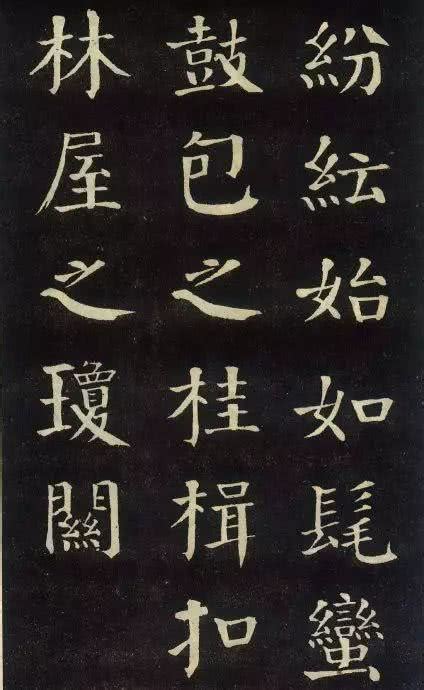 紛紜始如髦蠻
鼓包之桂楫扣
林屋之瓊關